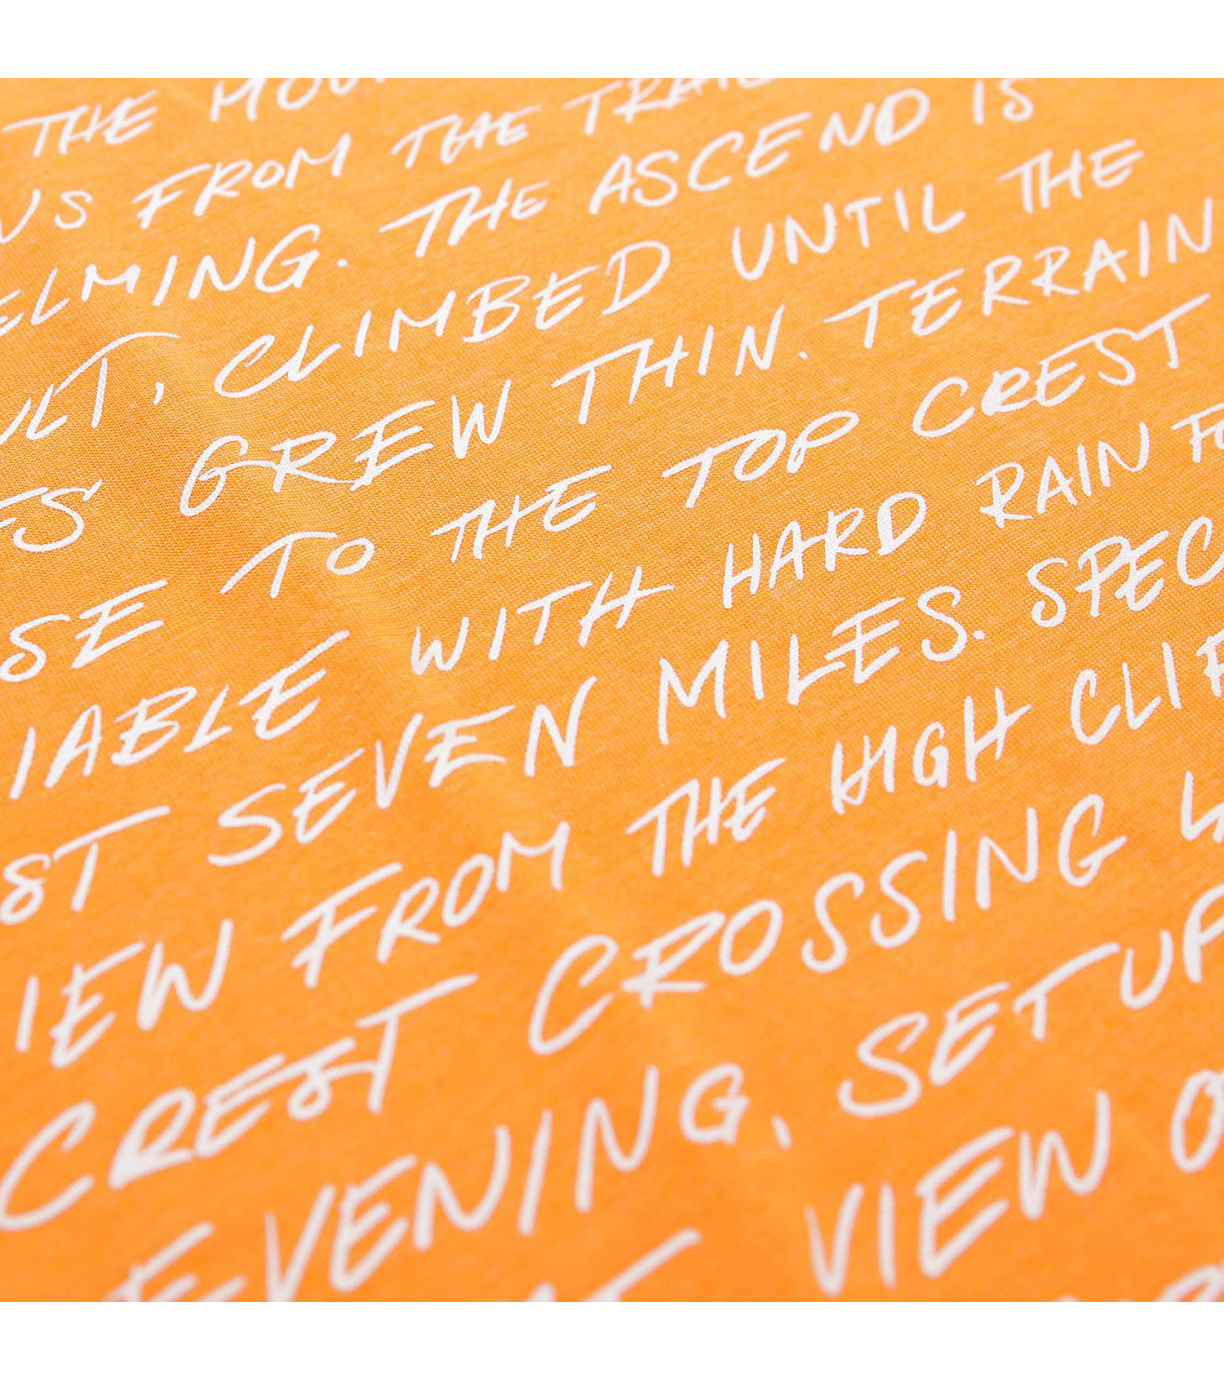 THE MOU
NS FROM THE TRAIL
ELMING. THE ASCEND IS
ULT, CLIMBED UNTIL THE
ES GREW THIN. TERRAIN
SE TO THE TOP CREST
IABLE WITH HARD RAIN FO
ST SEVEN MILES. SPEC
IEW FROM THE HIGH CLIF
CREST CROSSING
EVENING, SETUP
VIEW O